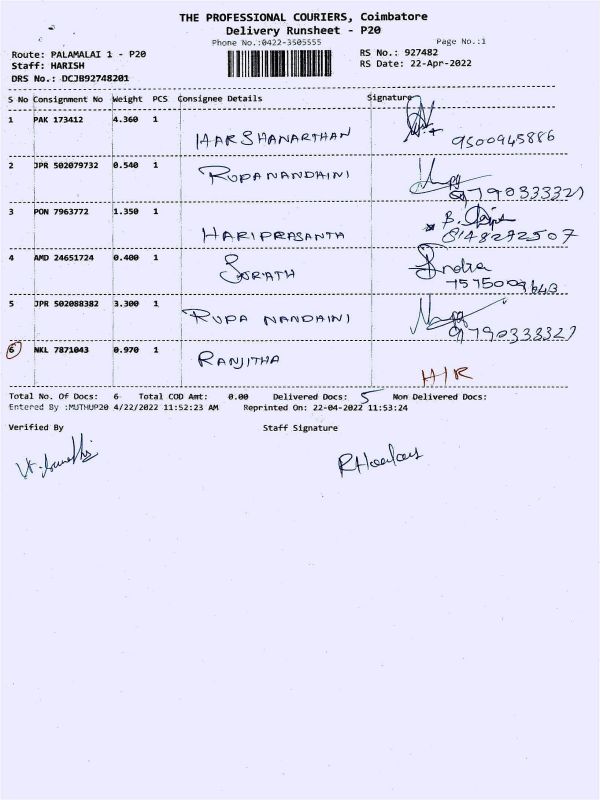 THE PROFESSIONAL COURIERS, Coimbatore
Delivery Runsheet - P20
Phone No.:0422-3505555 Page No.:1
Route: PALAMALAI 1 - P20 RS No.: 927482
Staff: HARISH RS Date: 22-Apr-2022
DRS No.: DCJB92748201
S No Consignment No Weight PCS Consignee Details Signature
1 PAK 173412 4.360 1 HARSHANARTHAN 9500945886
2 JPR 502079732 0.540 1 RUPANANDHINI 9790333321
3 PON 7963772 1.350 1 HARIPRASANTA 8148272507
4 AMD 24651724 0.400 1 Indra
5 JPR 502088382 3.300 1 RUPA NANDHINI 9790333321
6 NKL 7871043 0.970 1 RANJITHA H/R
Total No. Of Docs: 6 Total COD Amt: 0.00 Delivered Docs: 5 Non Delivered Docs:
Entered By :MUTHUP20 4/22/2022 11:52:23 AM Reprinted On: 22-04-2022 11:53:24
Verified By Staff Signature